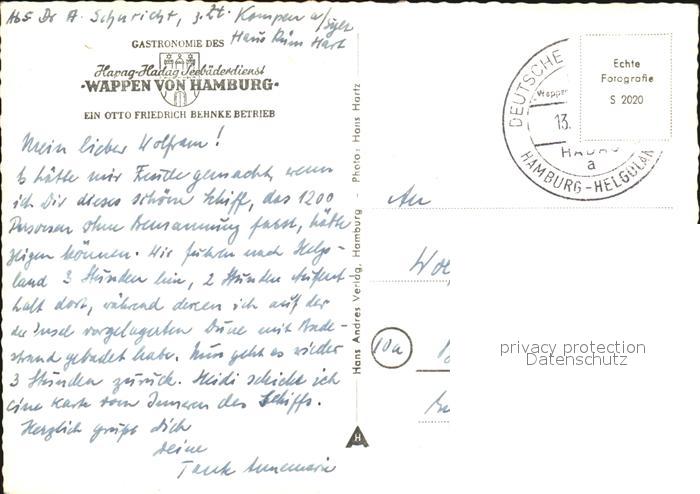 Abs Dr A. Schuricht, z. Zt. Kampen a/Sylt
Haus Rüm Hart
GASTRONOMIE DES
Hapag-Hadag Seebäderdienst
·WAPPEN VON HAMBURG·
EIN OTTO FRIEDRICH BEHNKE BETRIEB
Mein lieber Wolfram!
Es hätte mir Freude gemacht, wenn
ich Dir dieses schöne Schiff, das 1200
Personen ohne Bemannung fasst, hätte
zeigen können. Wir fuhren nach Helgo-
land 3 Stunden hin, 2 Stunden Aufent-
halt dort, während deren ich auf der
der Insel vorgelagerten Düne mit Bade-
strand gebadet habe. Nun geht es wieder
3 Stunden zurück. Heidi schicke ich
eine Karte vom Inneren des Schiffs.
Herzlich grüßt Dich
Deine
Tante Annemarie
Hans Andres Verlag, Hamburg - Photo: Hans Hartz
H
DEUTSCHE
Wappen
13.
HADAG
a
HAMBURG-HELGOLAN
Echte
Fotografie
S 2020
An
Wo
10a
privacy protection
Datenschutz